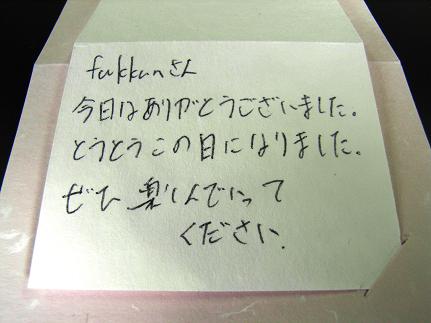 fukkunさん
今日はありがとうございました。
とうとうこの日になりました。
ぜひ楽しんでいって
ください.